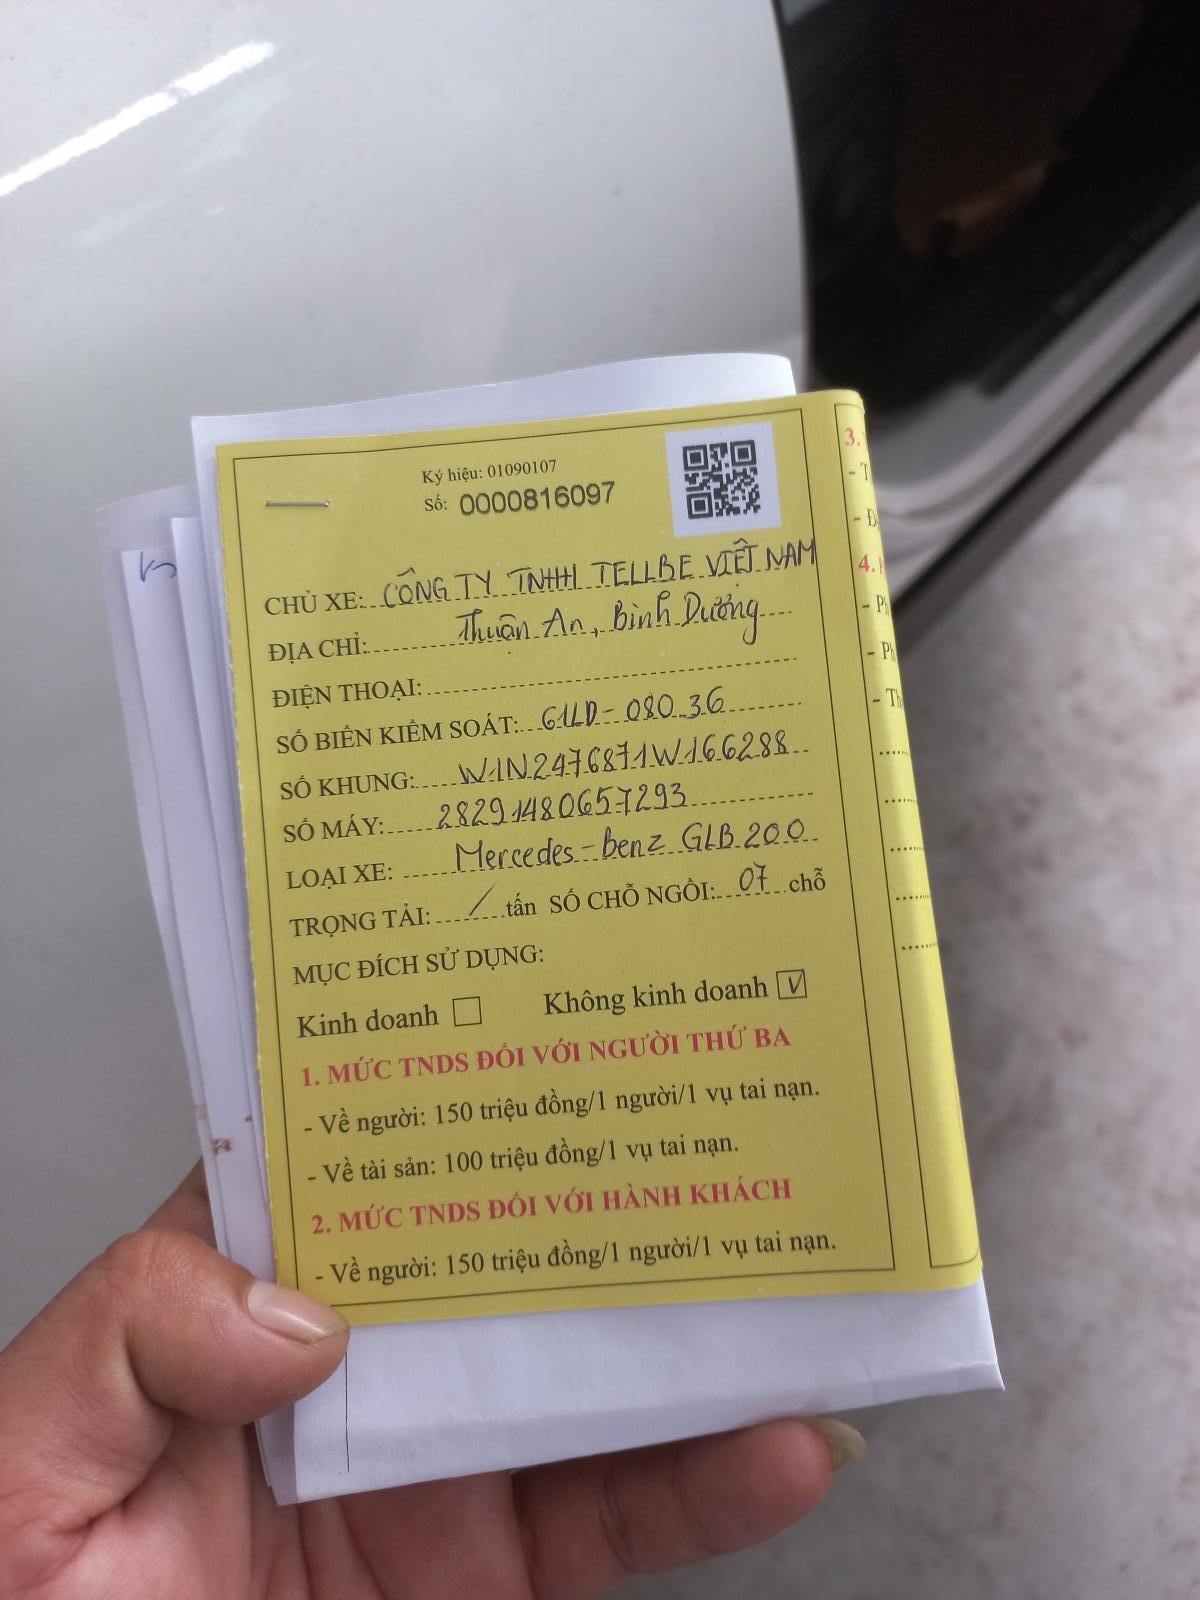 Ký hiệu: 01090107
Số: 0000816097
CHỦ XE: CÔNG TY TNHH TELLBE VIỆT NAM
ĐỊA CHỈ: Thuận An, Bình Dương
ĐIỆN THOẠI:
SỐ BIỂN KIỂM SOÁT: 61LD-080.36
SỐ KHUNG: W1N2476871W166288
SỐ MÁY: 28291480657293
LOẠI XE: Mercedes-Benz GLB 200
TRỌNG TẢI: / tấn SỐ CHỖ NGỒI: 07 chỗ
MỤC ĐÍCH SỬ DỤNG:
Kinh doanh ☐ Không kinh doanh ☑
1. MỨC TNDS ĐỐI VỚI NGƯỜI THỨ BA
- Về người: 150 triệu đồng/1 người/1 vụ tai nạn.
- Về tài sản: 100 triệu đồng/1 vụ tai nạn.
2. MỨC TNDS ĐỐI VỚI HÀNH KHÁCH
- Về người: 150 triệu đồng/1 người/1 vụ tai nạn.
3.
4.